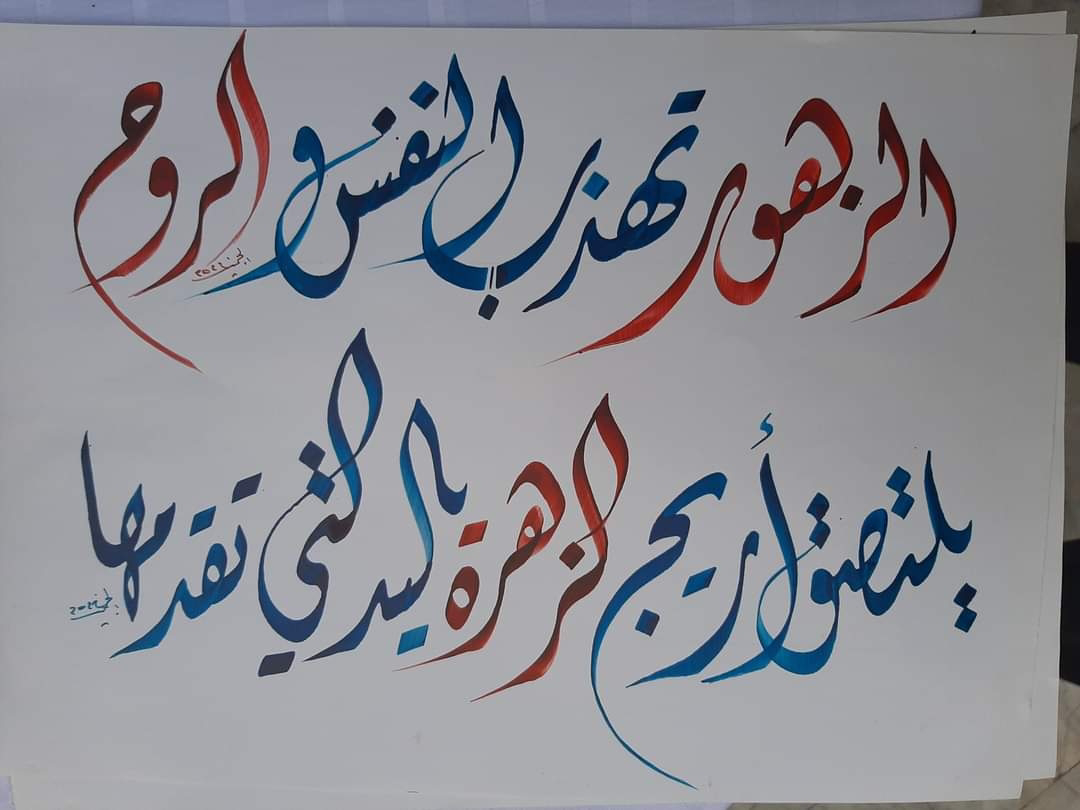 الزهور تهذب النفس و الروح
يلتصق أريج الزهرة باليد التي تقدمها